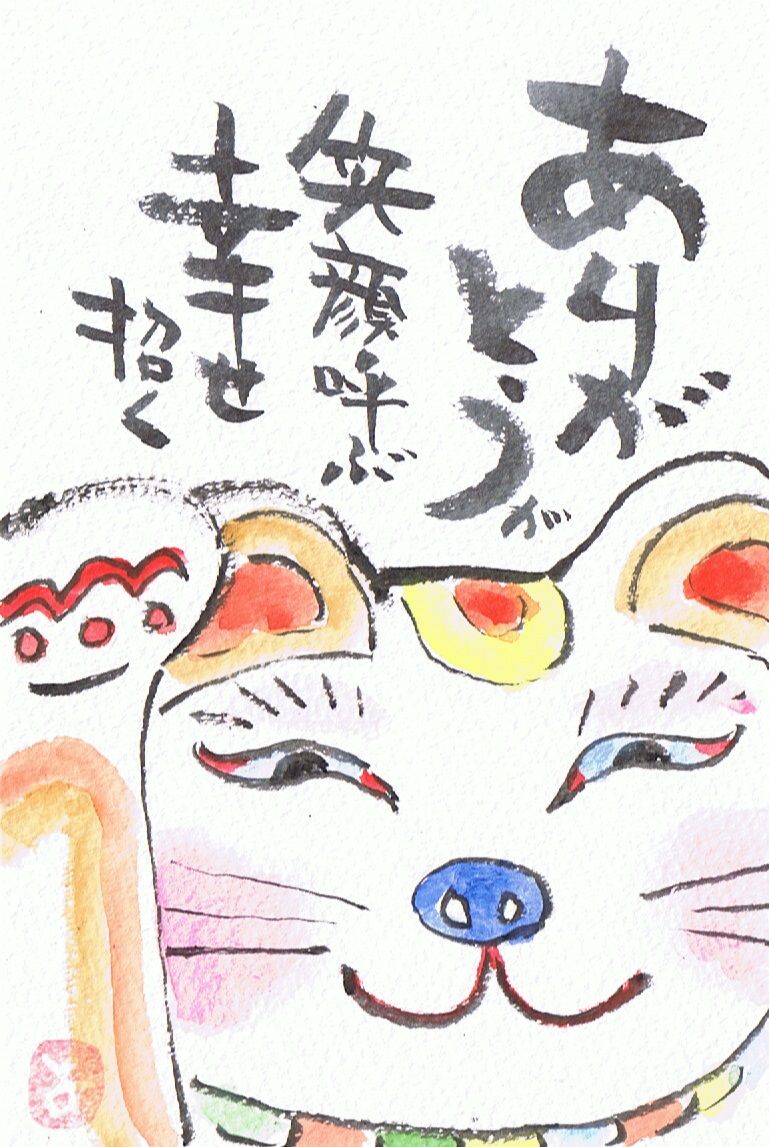 ありが
とうが
笑顔呼ぶ
幸せ
招く